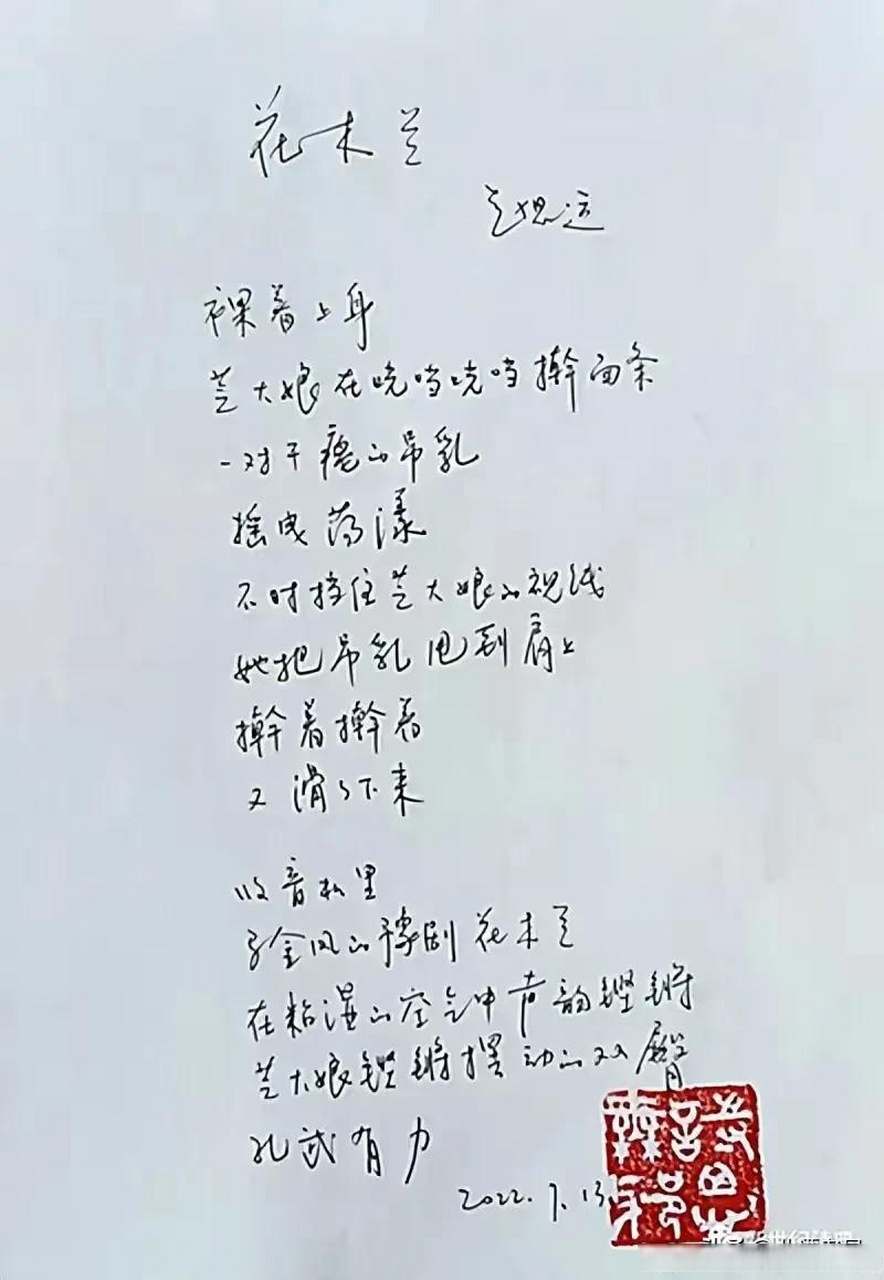 花木兰
赵思运
裸着上身
兰大娘在咣当咣当擀面条
一对干瘪的吊乳
摇曳荡漾
不时挡住兰大娘的视线
她把吊乳甩到肩上
擀着擀着
又滑了下来
收音机里
金凤的豫剧花木兰
在粘湿的空气中声韵铿锵
兰大娘铿锵摆动的双臀
孔武有力
2022.7.13
世纪诗吧